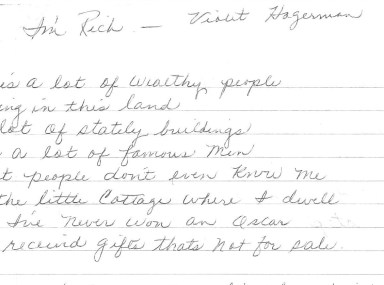 I'm Rich — Violet Hagerman
is a lot of wealthy people
ing in this land
lot of stately buildings
a lot of famous men
t people don't even know me
the little Cottage where I dwell
I've never won an Oscar
received gifts thats not for sale.